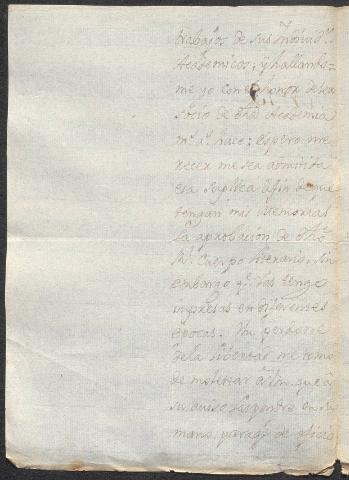 trabajos de sus
Academicos; y hallando=
me yo con el honor de ser
socio de dha Academia
hace; espero me=
recer me sea admitida
esa suplica afin de que
tengan mis Memorias
la aprobacion de dho
Rl. Cuerpo literario, sin
embargo qe. las tengo
impresas en diferentes
epocas. Vm perdone
de la libertad me tomo
de molestar a Vm. que à
su aviso las pondre en su
mano, para qe. de oficio